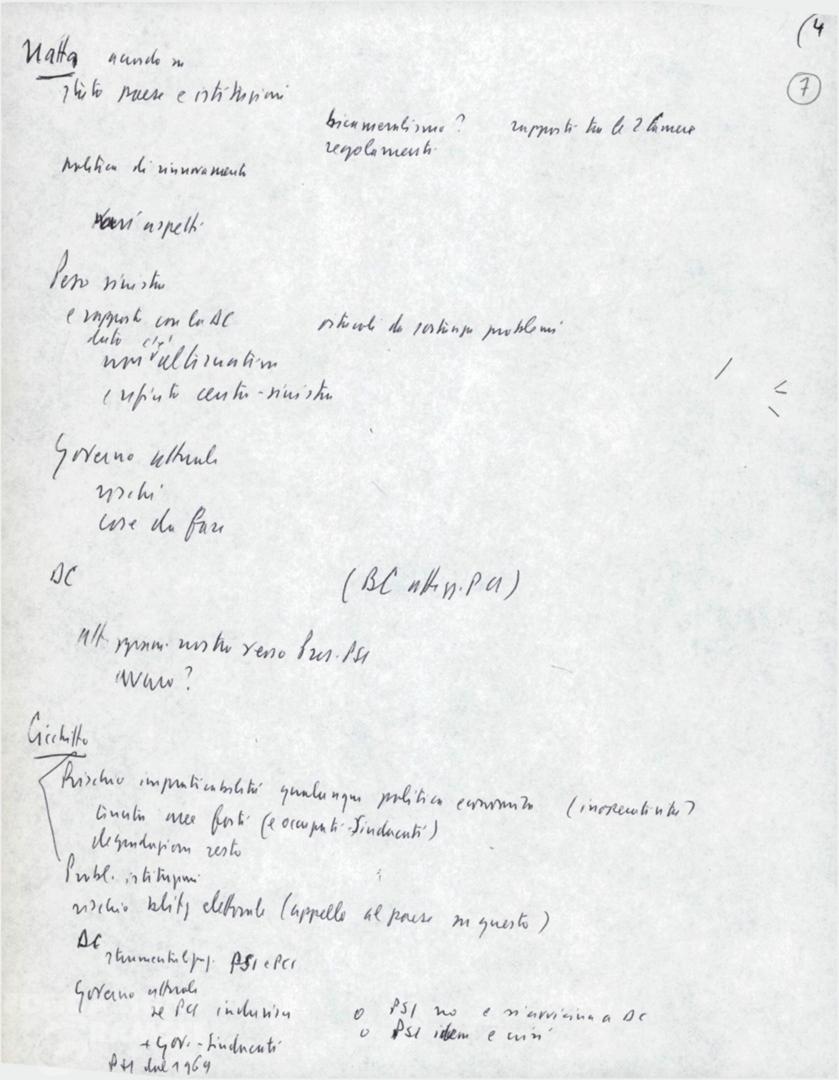 (4
7
Natta accordo su
stato paese e istituzioni
bicameralismo? rapporti tra le 2 Camere
regolamenti
politica di rinnovamento
vari aspetti
Peso sinistra
e rapporti con la DC ostacoli da sostanza problemi
dato ciò
non alternativa
e rifiuto centro-sinistra
Governo attuale
rischi
cose da fare
DC (BC attegg. PCI)
att. nostro verso Pres. PSI
Cicchitto
Rischio impraticabilità qualunque politica economica
tenuta aree forti (e occupati-sindacati)
degradazione resto
Probl. istituzioni
rischio blitz elettorale (appello al paese su questo)
DC
PSI e PCI
Governo attuale
se PCI indurisce o PSI no e si avvicina a DC
o PSI idem e crisi
+ Gov.-Sindacati
PSI dal 1969